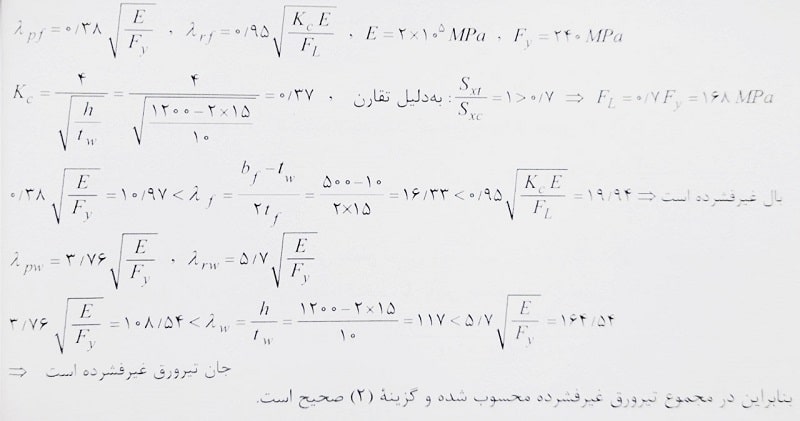 λ_pf = ۰/۳۸ √(E/F_y) , λ_rf = ۰/۹۵ √(K_c E/F_L) , E = ۲×۱۰^۵ MPa , F_y = ۲۴۰ MPa
K_c = ۴/√(h/t_w) = ۴/√((۱۲۰۰−۲×۱۵)/۱۰) = ۰/۳۷ به‌دلیل تقارن : S_xt/S_xc = ۱ > ۰/۷ ⇒ F_L = ۰/۷ F_y = ۱۶۸ MPa
۰/۳۸ √(E/F_y) = ۱۰/۹۷ < λ_f = (b_f − t_w)/۲t_f = (۵۰۰−۱۰)/(۲×۱۵) = ۱۶/۳۳ < ۰/۹۵ √(K_c E/F_L) = ۱۹/۹۴ ⇒ بال غیرفشرده است
λ_pw = ۳/۷۶ √(E/F_y) , λ_rw = ۵/۷ √(E/F_y)
۳/۷۶ √(E/F_y) = ۱۰۸/۵۴ < λ_w = h/t_w = (۱۲۰۰−۲×۱۵)/۱۰ = ۱۱۷ < ۵/۷ √(E/F_y) = ۱۶۴/۵۴
⇒ جان تیرورق غیرفشرده است
بنابراین در مجموع تیرورق غیرفشرده محسوب شده و گزینهٔ (۲) صحیح است.